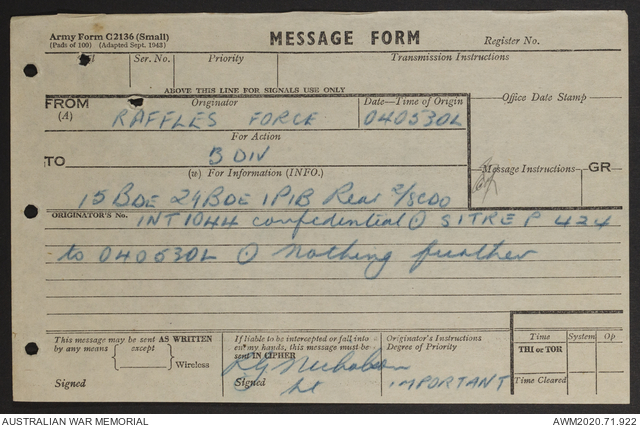 Army Form C2136 (Small)
(Pads of 100) (Adapted Sept. 1943)
MESSAGE FORM
Register No.
Ser. No.
Priority
Transmission Instructions
ABOVE THIS LINE FOR SIGNALS USE ONLY
FROM
(A)
Originator
RAFFLES FORCE
Date—Time of Origin
040530L
Office Date Stamp
For Action
TO
3 DIV
(w) For Information (INFO.)
Message Instructions
GR
15 BDE 29 BDE 1PIB Rear 2/8CDO
ORIGINATOR'S No.
INT1044 confidential ⊙ SITREP 424
to 040530L ⊙ Nothing further
This message may be sent AS WRITTEN
by any means except
Wireless
Signed
If liable to be intercepted or fall into
enemy hands, this message must be
sent IN CIPHER
Signed
Lt
Originator's Instructions
Degree of Priority
IMPORTANT
Time
System
Op
THI or TOR
Time Cleared
AUSTRALIAN WAR MEMORIAL
AWM2020.71.922